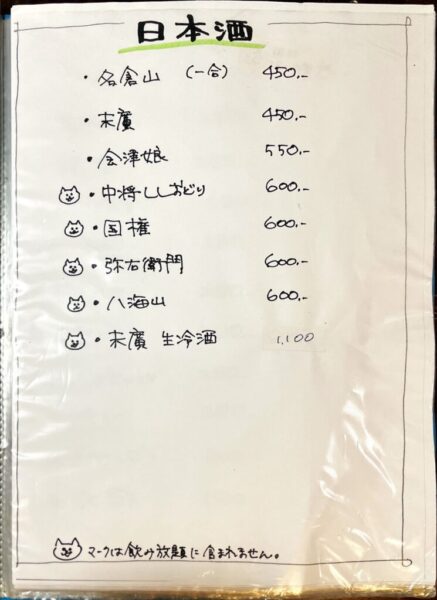 日本酒
・名倉山 (一合) 450.-
・末廣 450.-
・会津娘 550.-
・中将ししおどり 600.-
・国権 600.-
・弥右衛門 600.-
・八海山 600.-
・末廣 生冷酒 1,100
マークは飲み放題に含まれません。